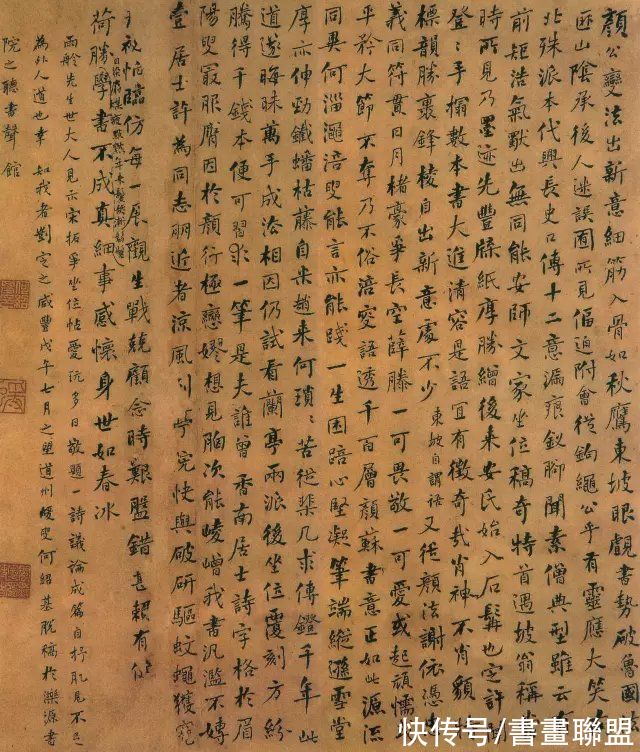 顏公變法出新意細筋入骨如秋鷹東坡眼覷書勢破魯國
匪山陰承後人迷誤面所見偪迫附會從鉤繩公乎有靈應大笑
北殊派本代興長史口傳十二意漏痕釵腳聞素僧典型雖云
前矩浩氣獸出無同能安師文家坐位稿奇特首遇坡翁稱
時所見乃墨迹先豐牋紙厚勝繒後來安民始入石髯也定許
登登手搨數本書大進清容是語宜有徵奇哉肖神不肖貌
標韻勝裏鋒棱自出新意處不少東坡自謂語又從顏法謝依憑
義同符貫日月楮豪爭長空薛滕一可畏敬一可愛或起頑懦
平矜大節不奪乃不俗涪叟語透千百層顏蘇書意正如此源流
同異何淄澠涪叟能言亦能踐一生困踣心堅凝筆端縱遜雪堂
厚亦伸勁鐵蟠枯藤自米趙來何瑣瑣苦從棐几求傳鐙千年此
道遂晦昧萬手成法相因仍試看蘭亭兩派後坐位覆刻方紛
騰得千錢本便可習求一筆是夫誰曾香南居士詩字格於眉
陽叟最服膺因於顏行極戀嫪想見胸次能崚嶒我書汎濫不
壹居士許為同志朋近者涼風到學快與破研驅蚊蠅獲
手祕帖臨仿每一展觀生戰兢顧念時艱盤錯甚賴有
荷勝學書不成真細事感懷身世如春冰
雨舲先生世大人見示宋拓爭坐位帖愛玩多日敬題一詩議論成篇自抒肌見不足
為外人道也幸 如我者劉定之咸豐戊午七月之望道州媛叟何紹基脫稿於濼源書
院之聽書聲館
快传号/書畫聯盟